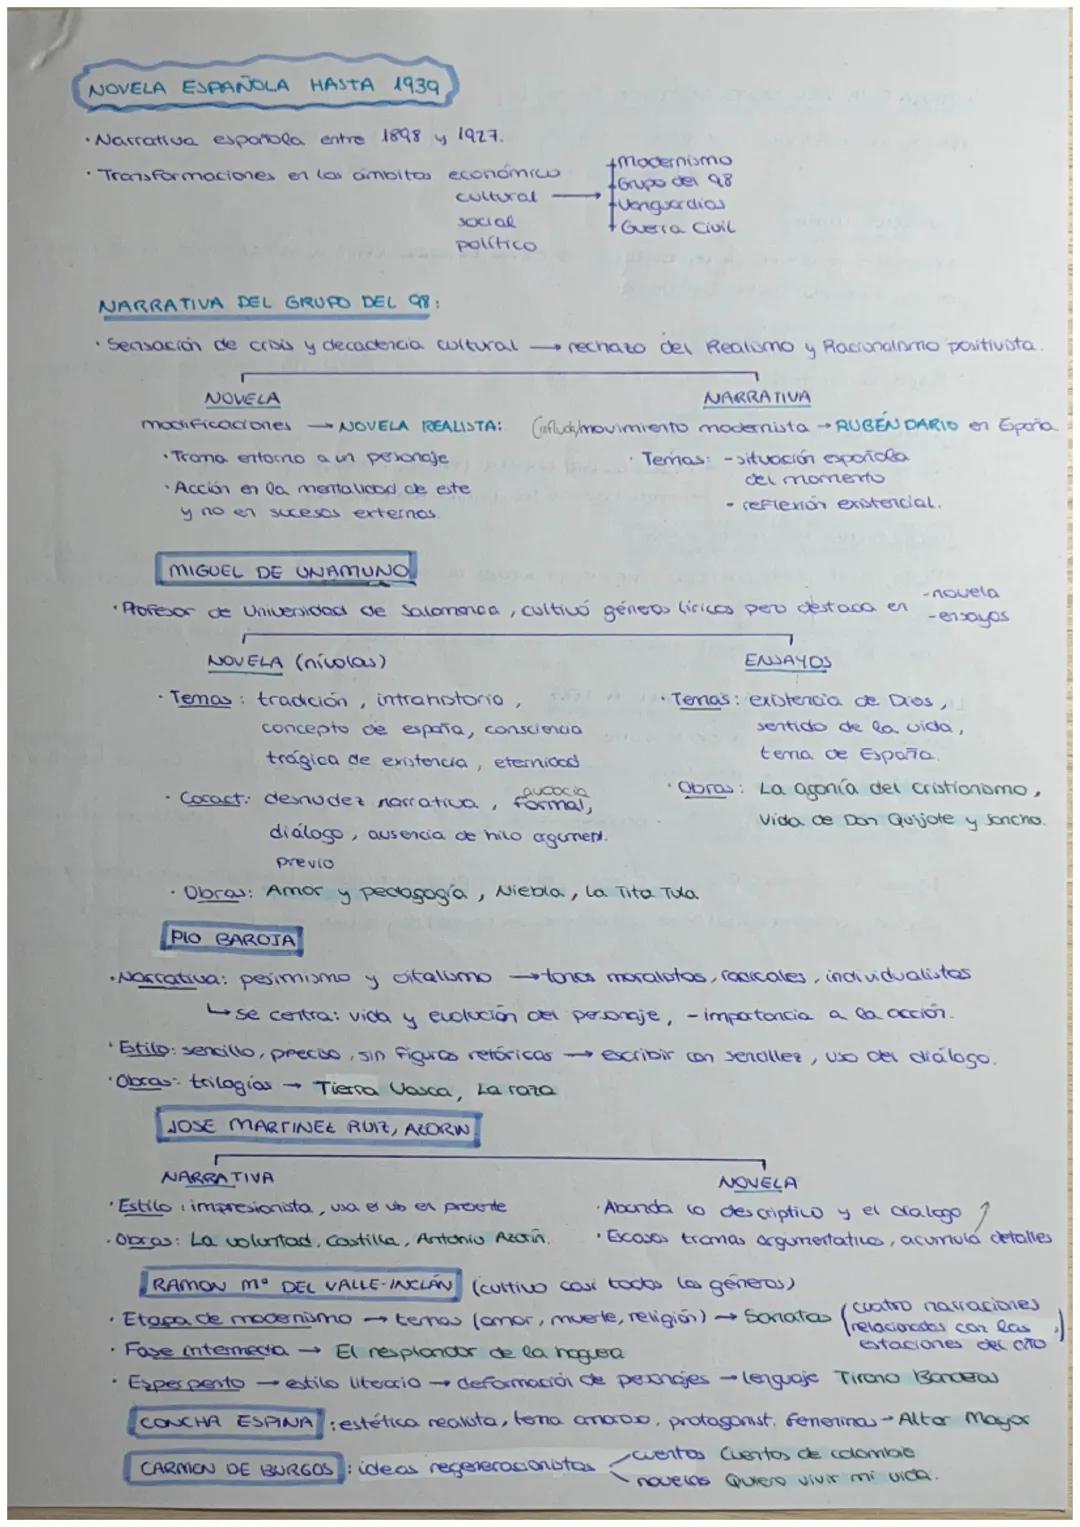 NOVELA ESPAÑOLA HASTA 1939
· Narrativa española entre 1898 y 1927.
· Transformaciones en los ámbitos económico
cultural →
social
político
+ Modernismo
+ Grupo del 98
+ Vanguardias
+ Guerra Civil
NARRATIVA DEL GRUPO DEL 98:
· Sensación de crisis y decadencia cultural → rechazo del Realismo y Racionalismo positivista.
NOVELA
modificaciones → NOVELA REALISTA:
· Trama entorno a un personaje
· Acción en la mentalidad de este
y no en sucesos externos.
NARRATIVA
movimiento modernista → RUBÉN DARIO en España
· Temas: - situación española
del momento
- reflexión existencial.
MIGUEL DE UNAMUNO
· Profesor de Universidad de Salamanca, cultivó géneros líricos pero destaca en
- novela
- ensayos
NOVELA (nivolas)
· Temas: tradición, intrahistoria,
concepto de españa, consciencia
trágica de existencia, eternidad
· Caract: desnudez narrativa, audacia formal,
diálogo, ausencia de hilo argument.
previo
· Obras: Amor y pedagogía, Niebla, La Tita Tula
ENSAYOS
· Temas: existencia de Dios,
sentido de la vida,
tema de España.
· Obras: La agonía del cristianismo,
Vida de Don Quijote y Sancho.
PIO BAROJA
· Narrativa: pesimismo y vitalismo → tonos moralistas, radicales, individualistas
↳ se centra: vida y evolución del personaje, - importancia a la acción.
· Estilo: sencillo, preciso, sin figuras retóricas → escribir con sencillez, uso del diálogo.
· Obras: trilogías → Tierra Vasca, La raza
JOSE MARTINEZ RUIZ, AZORIN
NARRATIVA
· Estilo: impresionista, usa el vb en presente
· Obras: La voluntad, Castilla, Antonio Azorín.
NOVELA
· Abunda lo descriptivo y el dialogo
· Escasas tramas argumentativas, acumula detalles
RAMON Mª DEL VALLE-INCLÁN (cultivo casi todos los géneros)
· Etapa de modernismo → temas (amor, muerte, religión) → Sonatas (cuatro narraciones
relacionadas con las
estaciones del año)
· Fase intermedia → El resplandor de la hoguera
· Esperpento → estilo literario → deformación de personajes → lenguaje Tirano Banderas
CONCHA ESPINA: estética realista, tema amoroso, protagonist. femeninas → Altar Mayor
CARMEN DE BURGOS: ideas regeneracionistas
cuentos Cuentos de colombie
novelas Quiero vivir mi vida.